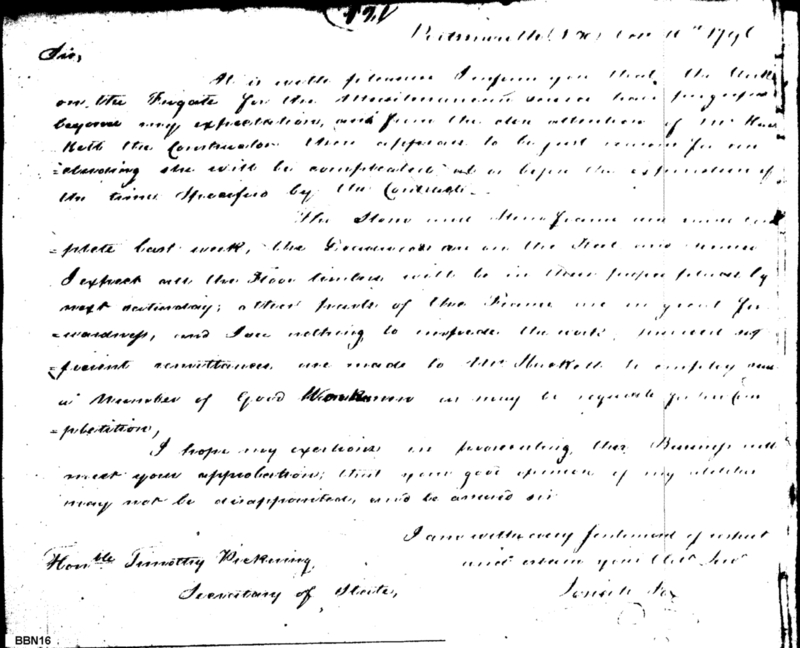 121
Portsmouth 1796
Sir,
It is with pleasure I inform you that the Work
on the Frigate for the Mediterranean service have progressed
beyond my expectation, and from the attention of Mr Hac
kett the Constructor there appears to be just reason for con
=cluding she will be compleated at or before the expiration of
the time specified by the Contract.
The Stern and Stern frame were com
=pleted last week, the are on the Keel and
I expect all the Floor timbers will be in their proper places by
next saturday; other parts of the Frame are in great for
=wardness, and I see nothing to impede the work, provided suf
ficient remittances are made to Mr Hackett to employ such
a Number of Good Workmen as may be requisite for her Com
=pletion,
I hope my exertions in prosecuting this Business will
meet your approbation; that your good opinion of my abilities
may not be disappointed, and be assured sir
I am with every sentiment of respect
and esteem your Obt. Servt
Josiah Fox
Honble Timothy Pickering
Secretary of State,
BBN16